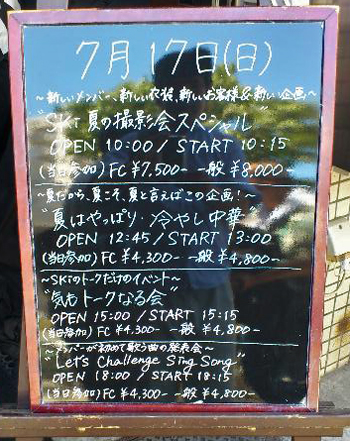 7月17日(日)
～新しいメンバー、新しい衣装、新しいお客様&新しい企画～
"SKT夏の撮影会スペシャル"
OPEN 10:00 / START 10:15
(当日参加) FC ¥7,500- 一般 ¥8,000-
～夏だから、夏こそ、夏と言えばこの企画!～
"夏はやっぱり冷やし中華"
OPEN 12:45 / START 13:00
(当日参加) FC ¥4,300- 一般 ¥4,800-
～SKTのトークだけのイベント～
"気もトークなる会"
OPEN 15:00 / START 15:15
(当日参加) FC ¥4,300- 一般 ¥4,800-
～メンバーが初めて歌う曲の発表会～
"Let's Challenge Sing Song"
OPEN 18:00 / START 18:15
(当日参加) FC ¥4,300- 一般 ¥4,800-